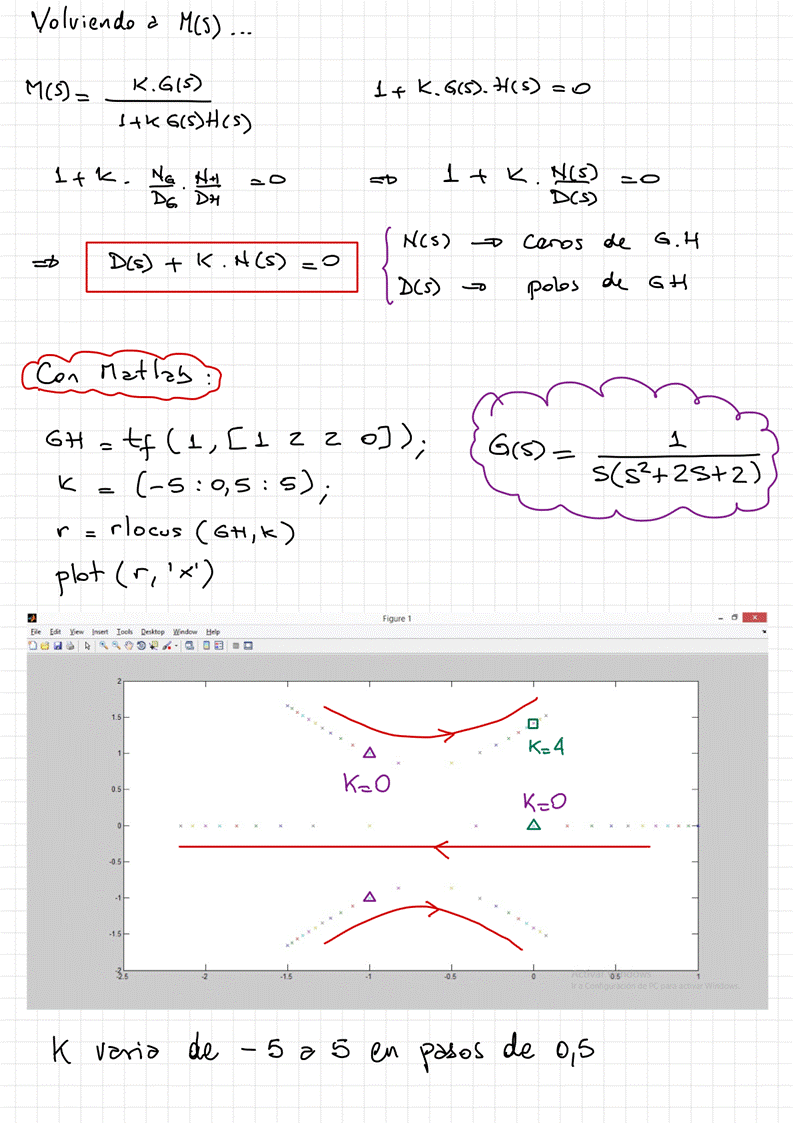 Volviendo a M(s)...
M(s) = K.G(s) / 1+K G(s)H(s)    1 + K.G(s).H(s) = 0
1 + K . NG/DG . NH/DH = 0  ⇒  1 + K . N(s)/D(s) = 0
⇒ D(s) + K . N(s) = 0
N(s) → ceros de G.H
D(s) → polos de GH
Con Matlab :
GH = tf ( 1 , [ 1 2 2 0 ] ) ;
K = (-5 : 0,5 : 5) ;
r = rlocus (GH, K)
plot ( r, 'x')
G(s) = 1 / s(s²+2s+2)
Figure 1
File Edit View Insert Tools Desktop Window Help
2
1.5
1
0.5
0
-0.5
-1
-1.5
-2
-2.5 -2 -1.5 -1 -0.5 0 0.5 1
K=4
K=0
K=0
Activar Windows
Ir a Configuración de PC para activar Windows.
K varia de -5 a 5 en pasos de 0,5